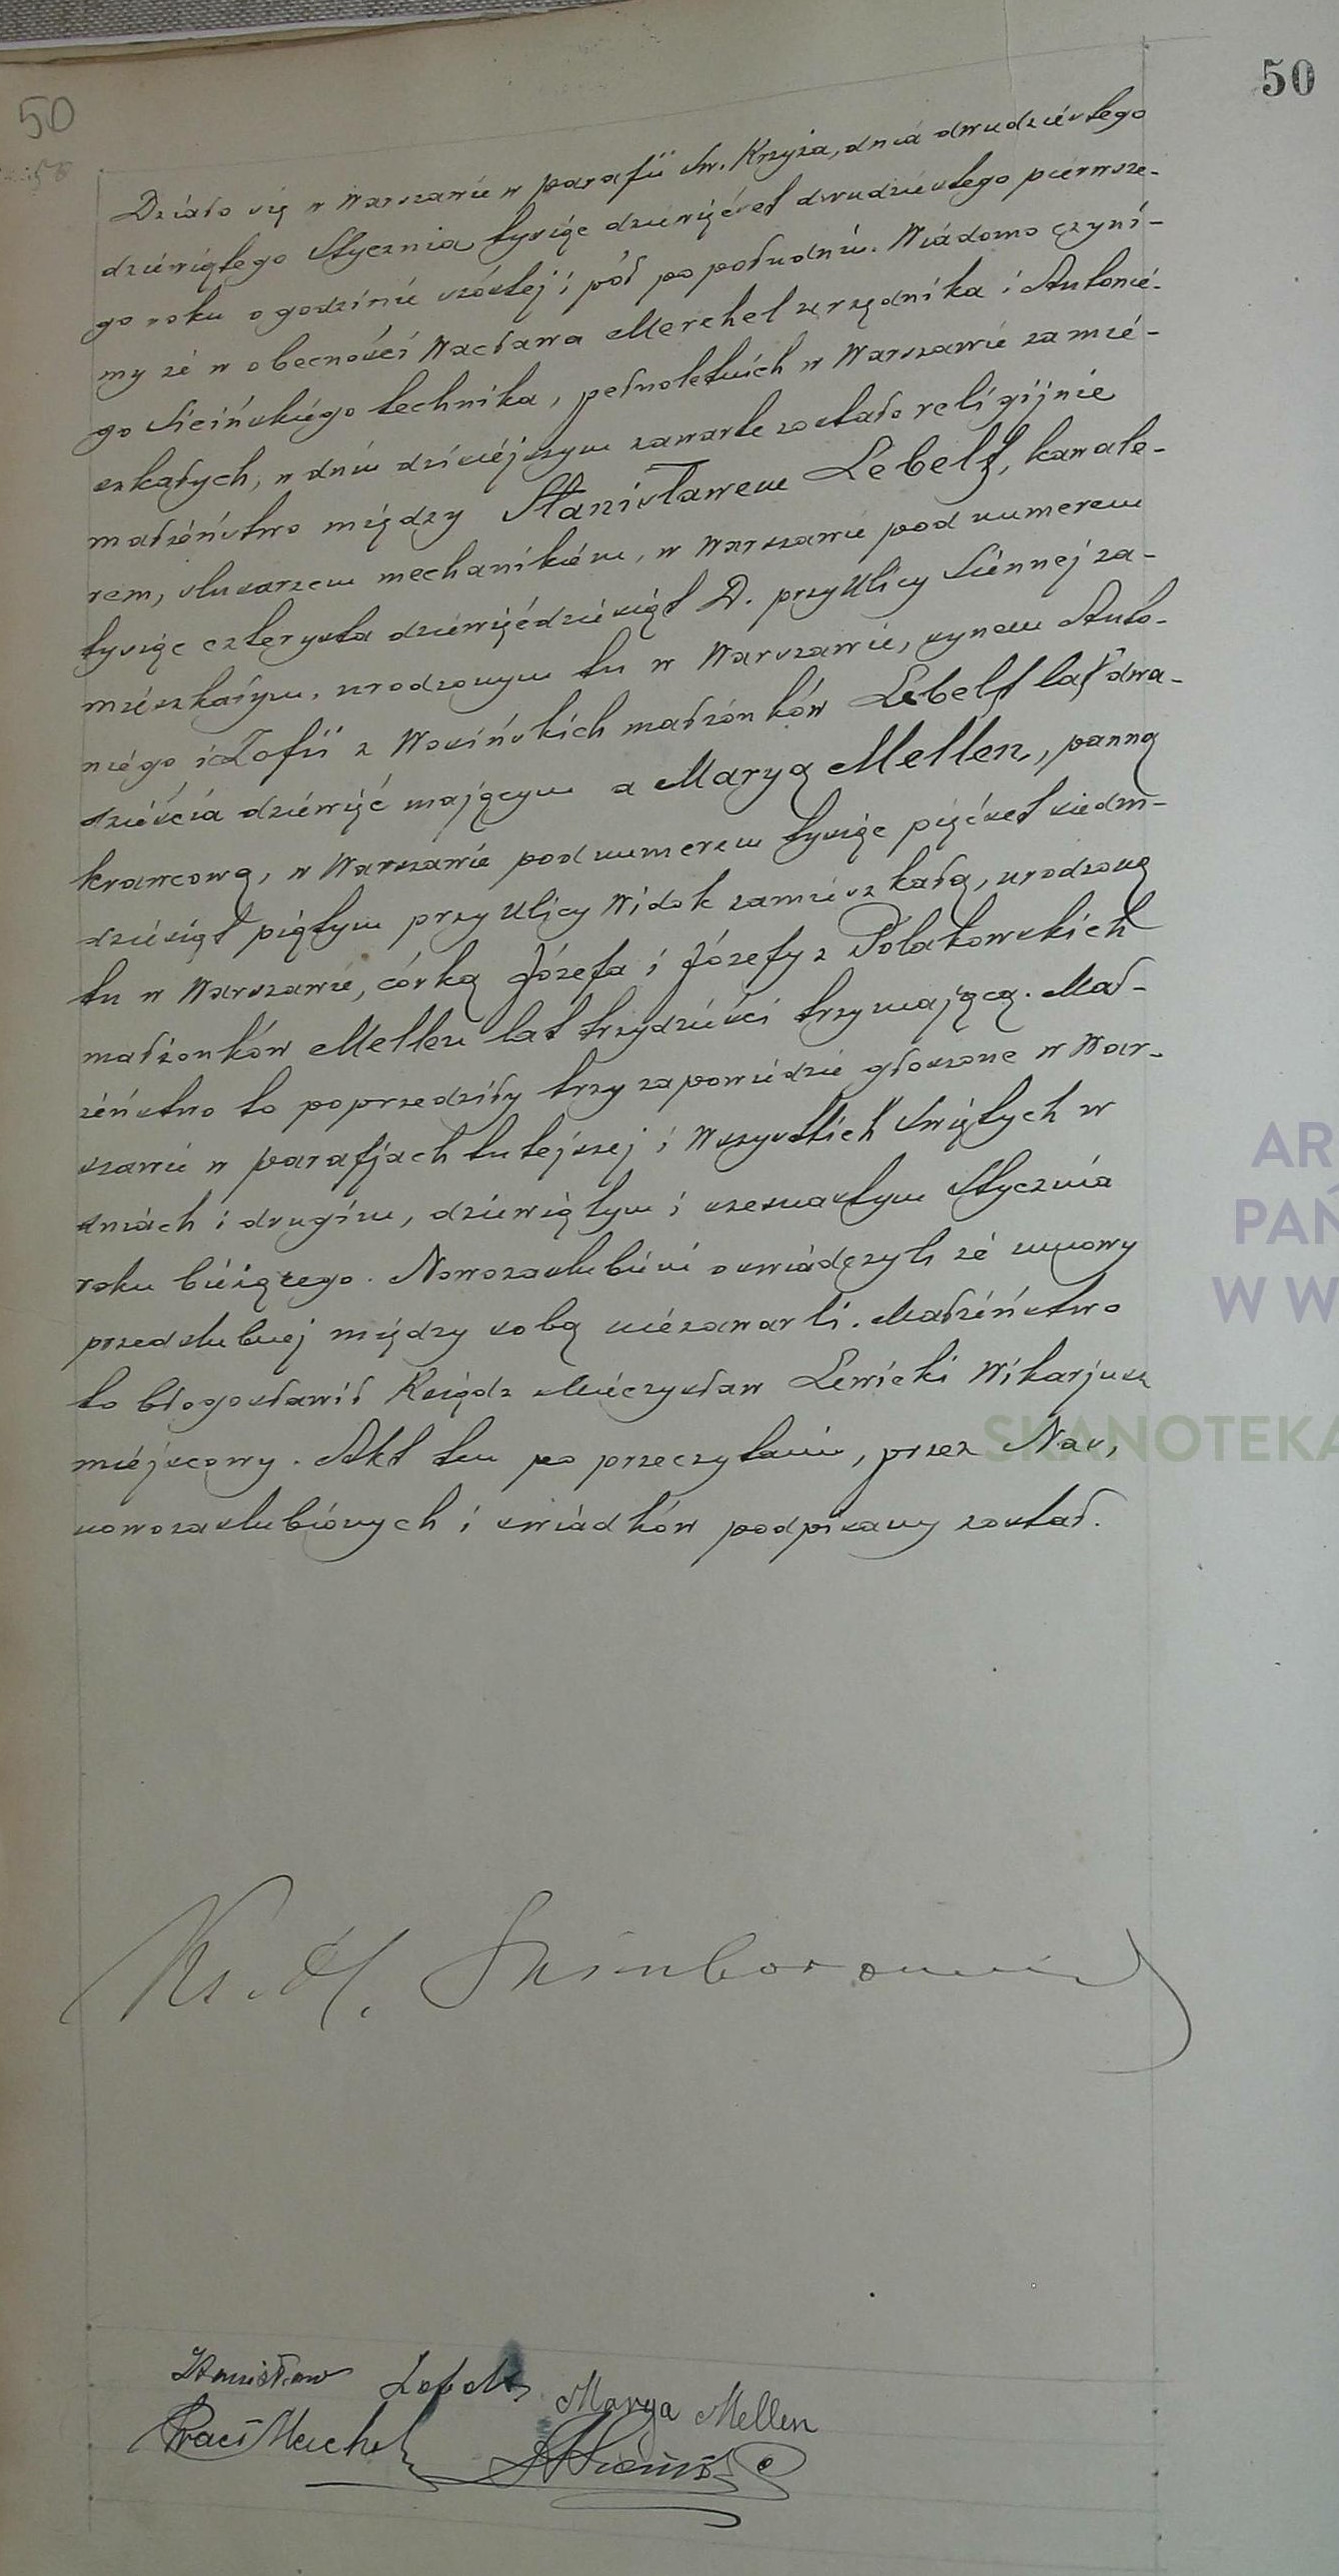 50
50
Działo się w Warszawie w parafii Św. Krzyża, dnia dwudziestego
dziewiątego Stycznia tysiąc dziewięćset dwudziestego pierwsze-
go roku o godzinie szóstej i pół po południu. Wiadomo czyni-
my że w obecności Wacława Merchel urzędnika i Antonie-
go Sicińskiego technika, pełnoletnich w Warszawie zamie-
szkałych, w dniu dzisiejszym zawarte zostało religijnie
małżeństwo między Stanisławem Lebelt, kawale-
rem, ślusarzem mechanikiem, w Warszawie pod numerem
tysiąc czterysta dziewięćdziesiąt D. przy Ulicy Siennej za-
mieszkałym, urodzonym tu w Warszawie, synem Anto-
niego i Zofii z Wosińskich małżonków Lebelt lat dwa-
dzieścia dziewięć mającym a Maryą Mellen, panną
krawcową, w Warszawie pod numerem tysiąc pięćset siedm-
dziesiąt piątym przy Ulicy Widok zamieszkałą, urodzoną
tu w Warszawie, córką Józefa i Józefy z Polakowskich
małżonków Mellen lat trzydzieści trzy mającą. Mał-
żeństwo to poprzedziły trzy zapowiedzie głoszone w War-
szawie w parafjach tutejszej i Wszystkich Świętych w
dniach i drugim, dziewiątym i szesnastym Stycznia
roku bieżącego. Nowozaślubieni oświadczyli że umowy
przedślubnej między sobą niezawarli. Małżeństwo
to błogosławił Ksiądz Mieczysław Lewicki Wikarjusz
miejscowy. Akt ten po przeczytaniu, przez Nas,
nowozaślubionych i świadków podpisany został.
Ks. M.
Stanisław Lebelt Marya Mellen
Wacł Merchel
AR
PAŃ
W W
SKANOTEKA